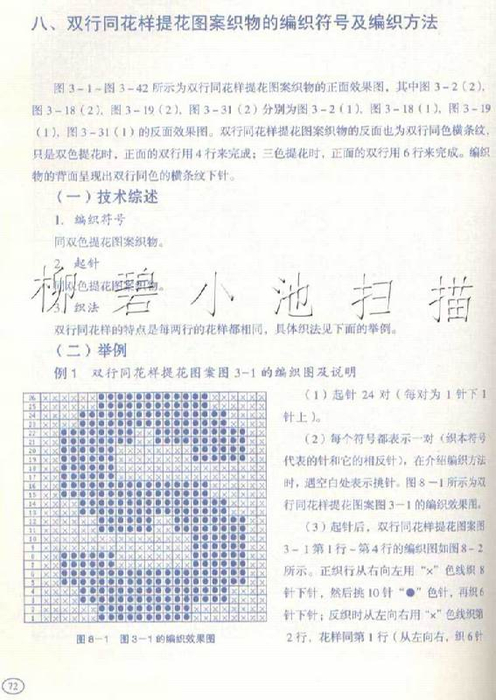 八、双行同花样提花图案织物的编织符号及编织方法
图 3-1~图 3-42 所示为双行同花样提花图案织物的正面效果图，其中图 3-2（2）、
图 3-18（2）、图 3-19（2）、图 3-31（2）分别为图 3-2（1）、图 3-18（1）、图 3-19
（1）、图 3-31（1）的反面效果图。双行同花样提花图案织物的反面也为双行同色横条纹，
只是双色提花时，正面的双行用 4 行来完成；三色提花时，正面的双行用 6 行来完成。编织
物的背面呈现出双行同色的横条纹下针。
（一）技术综述
1. 编织符号
同双色提花图案织物。
2. 起针
同双色提花图案织物。
3. 织法
柳碧小池扫描
双行同花样的特点是每两行的花样都相同，具体织法见下面的举例。
（二）举例
例 1 双行同花样提花图案图 3-1 的编织图及说明
（1）起针 24 对（每对为 1 针下 1
针上）。
（2）每个符号都表示一对（织本符号
代表的针和它的相反针），在介绍编织方法
时，遇空白处表示挑针。图 8-1 所示为双
行同花样提花图案图 3-1 的编织效果图。
（3）起针后，双行同花样提花图案图
3-1 第 1 行~第 4 行的编织图如图 8-2
所示。正织行从右向左用“×”色线织 8
针下针，然后挑 10 针“●”色针，再织 6
针下针；反织时从左向右用“×”色线织第
2 行，花样同第 1 行（从左向右，织 6 针
图 8-1 图 3-1 的编织效果图
72